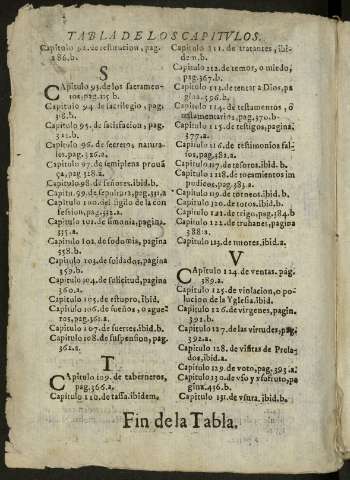 TABLA DE LOS CAPITVLOS.
Capitulo 92. de restitucion, pag.
286.b.
S
CApitulo 93. de los sacramen-
tos, pag.
Capitulo 94. de sacrilegio, pag.
Capitulo 95. de satisfacion, pag.
Capitulo 96. de secretos natura-
les. pag. 326.a.
Capitulo 97. de semiplena proua
ça, pag 328.a.
Capitulo 98. de señores. ibid.b.
Capitu. 99. de sepultura, pag.
Capitulo 100. del sigilo de la con
fession, pag.332.a.
Capitulo 101. de simonia, pagina
335.a.
Capitulo 102. de sodomia, pagina
358.b.
Capitulo 103. de soldados, pagina
359.b.
Capitulo 104. de solicitud, pagina
360.a.
Capitulo 105. de estupro. ibid.
Capitulo 106. de sueños, o ague-
ros, pag. 361.a.
Capitulo 107. de suertes. ibid.b.
Capitulo 108. de suspension, pag.
362.a.
T
CApitulo 109. de taberneros,
pag. 366.a.
Capitulo 110. de tassa. ibidem.
Capitulo 111. de tratantes, ibi-
dem.b.
Capitulo 112. de temor, o miedo,
pag. 367.b.
Capitulo 113. de tentar a Dios, pa
gina. 396.b.
Capitulo 114. de testamentos, ò
testamentarios, pag. 370.b
Capitulo 115. de testigos, pagina
377.a.
Capitulo 116. de testimonios fal-
sos, pag. 382.a.
Capitulo 117. de tesoros. ibid.b.
Capitulo 118. de tocamientos im
pudicos, pag. 383.a.
Capitulo 119. de torneos. ibid.b.
Capitulo 120. de toros. ibid.b.
Capitulo 121. de trigo, pag. 384.b
Capitulo 122. de truhanes, pagina
388.a.
Capitulo 123. de tutores. ibid.a.
V
CApitulo 124. de ventas. pag.
389.a.
Capitulo 125. de violacion, o po-
lucion de la Yglesia. ibid.
Capitulo 126. de virgenes, pagin.
391.b.
Capitulo 127. de las virtudes, pag.
392.a.
Capitulo 128. de visitas de Prela-
dos, ibid.a.
Capitulo 129. de voto, pag. 393.a.
Capitulo 130. de vso y vsufruto, pa
gina. 436.b.
Capitulo 131. de vsura. ibid.b.
Fin de la Tabla.